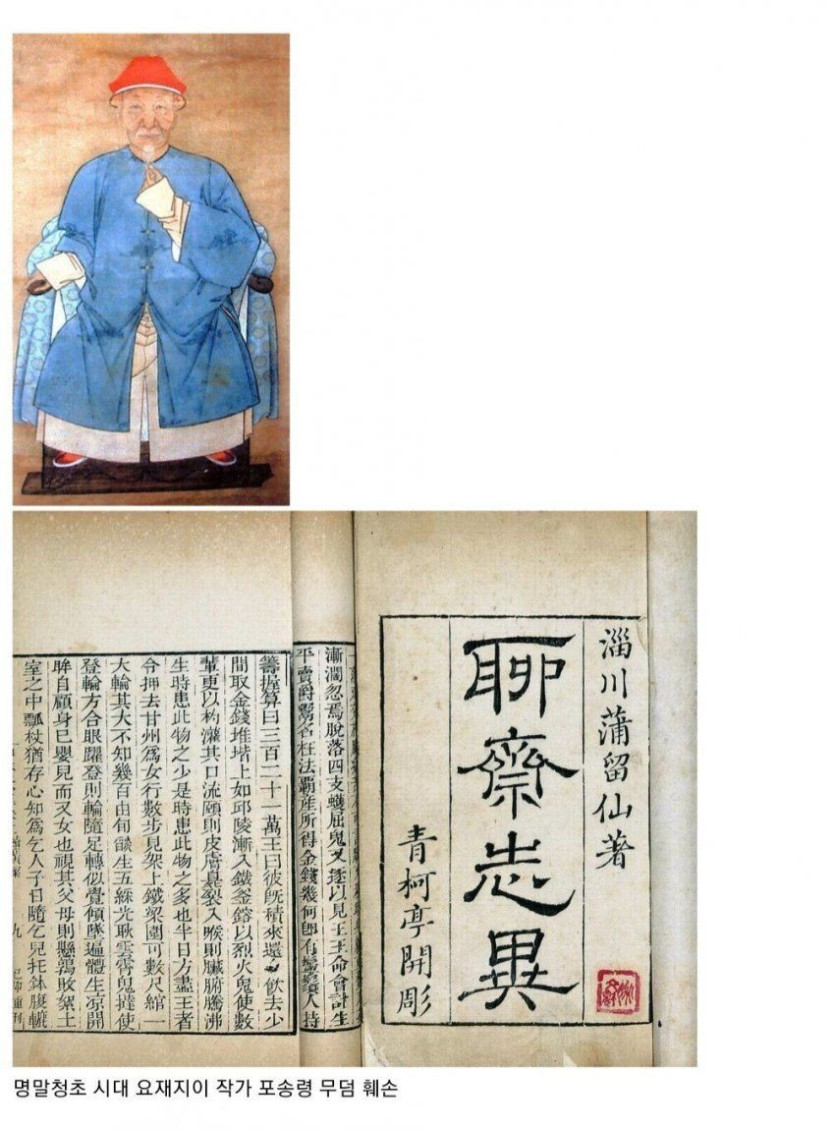 淄川蒲留仙著
聊齋志異
青柯亭開彫
漸潤忽焉脫落四支蠖屈鬼又逐以見王王命會計生
平賣爵鬻名枉法霸產所得金錢幾何卽有人持
籌握算曰三百二十一萬王曰彼旣積來還飲去少
間取金錢堆堦上如邱陵漸入鐵釜鎔以烈火鬼使數
輩更以杓灌其口流頤則皮膚臭裂入喉則臟腑騰沸
生時患此物之少是時患此物之多也半日方盡王者
令押去甘州爲女行數步見架上鐵梁圍可數尺綰一
大輪其大不知幾百由旬燄生五綵光耿雲霄鬼撻使
登輪方合眼躍登則輪隨足轉似覺傾墜遍體生凉開
眸自顧身已嬰兒而又女也視其父母則懸鶉敗絮土
室之中瓢杖猶存心知爲乞人子日隨乞兒托鉢腹轆
九
명말청초 시대 요재지이 작가 포송령 무덤 훼손